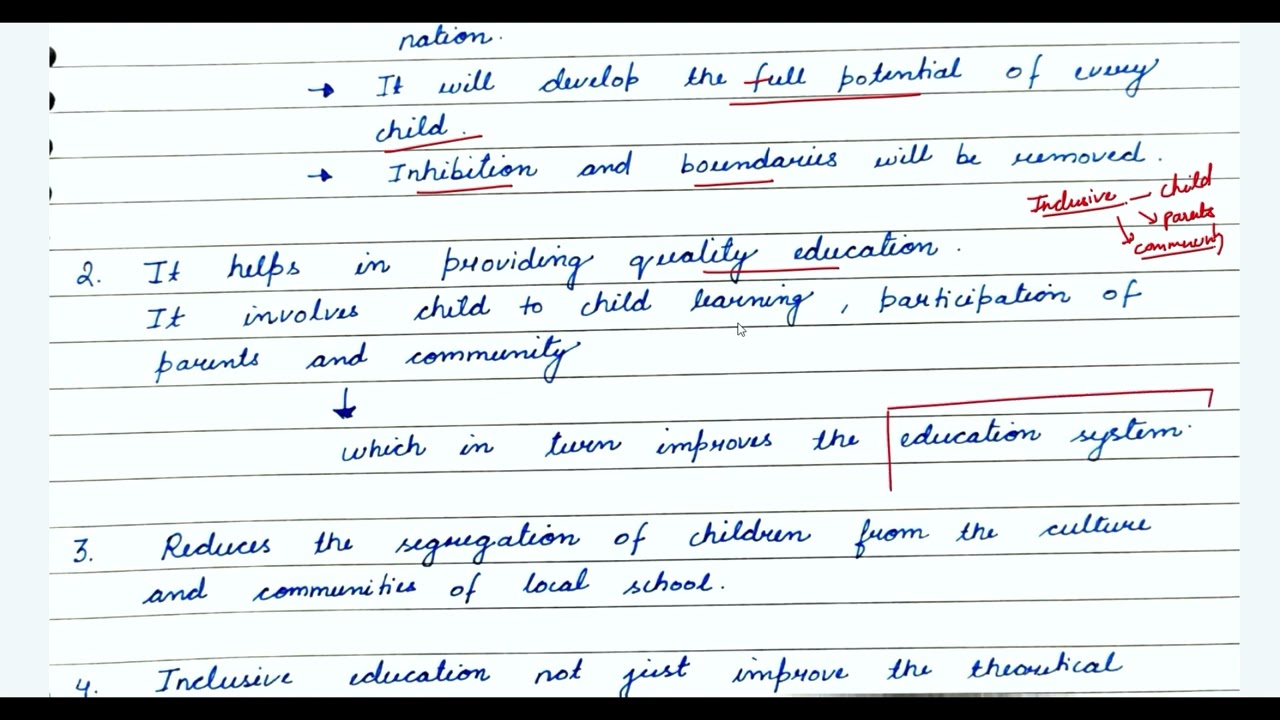 nation.
→ It will develop the full potential of every
child.
→ Inhibition and boundaries will be removed.
Inclusive — child
↘ parents
↘ community
2. It helps in providing quality education.
It involves child to child learning, participation of
parents and community
↓
which in turn improves the education system.
3. Reduces the segregation of children from the culture
and communities of local school.
4. Inclusive education not just improve the theoretical